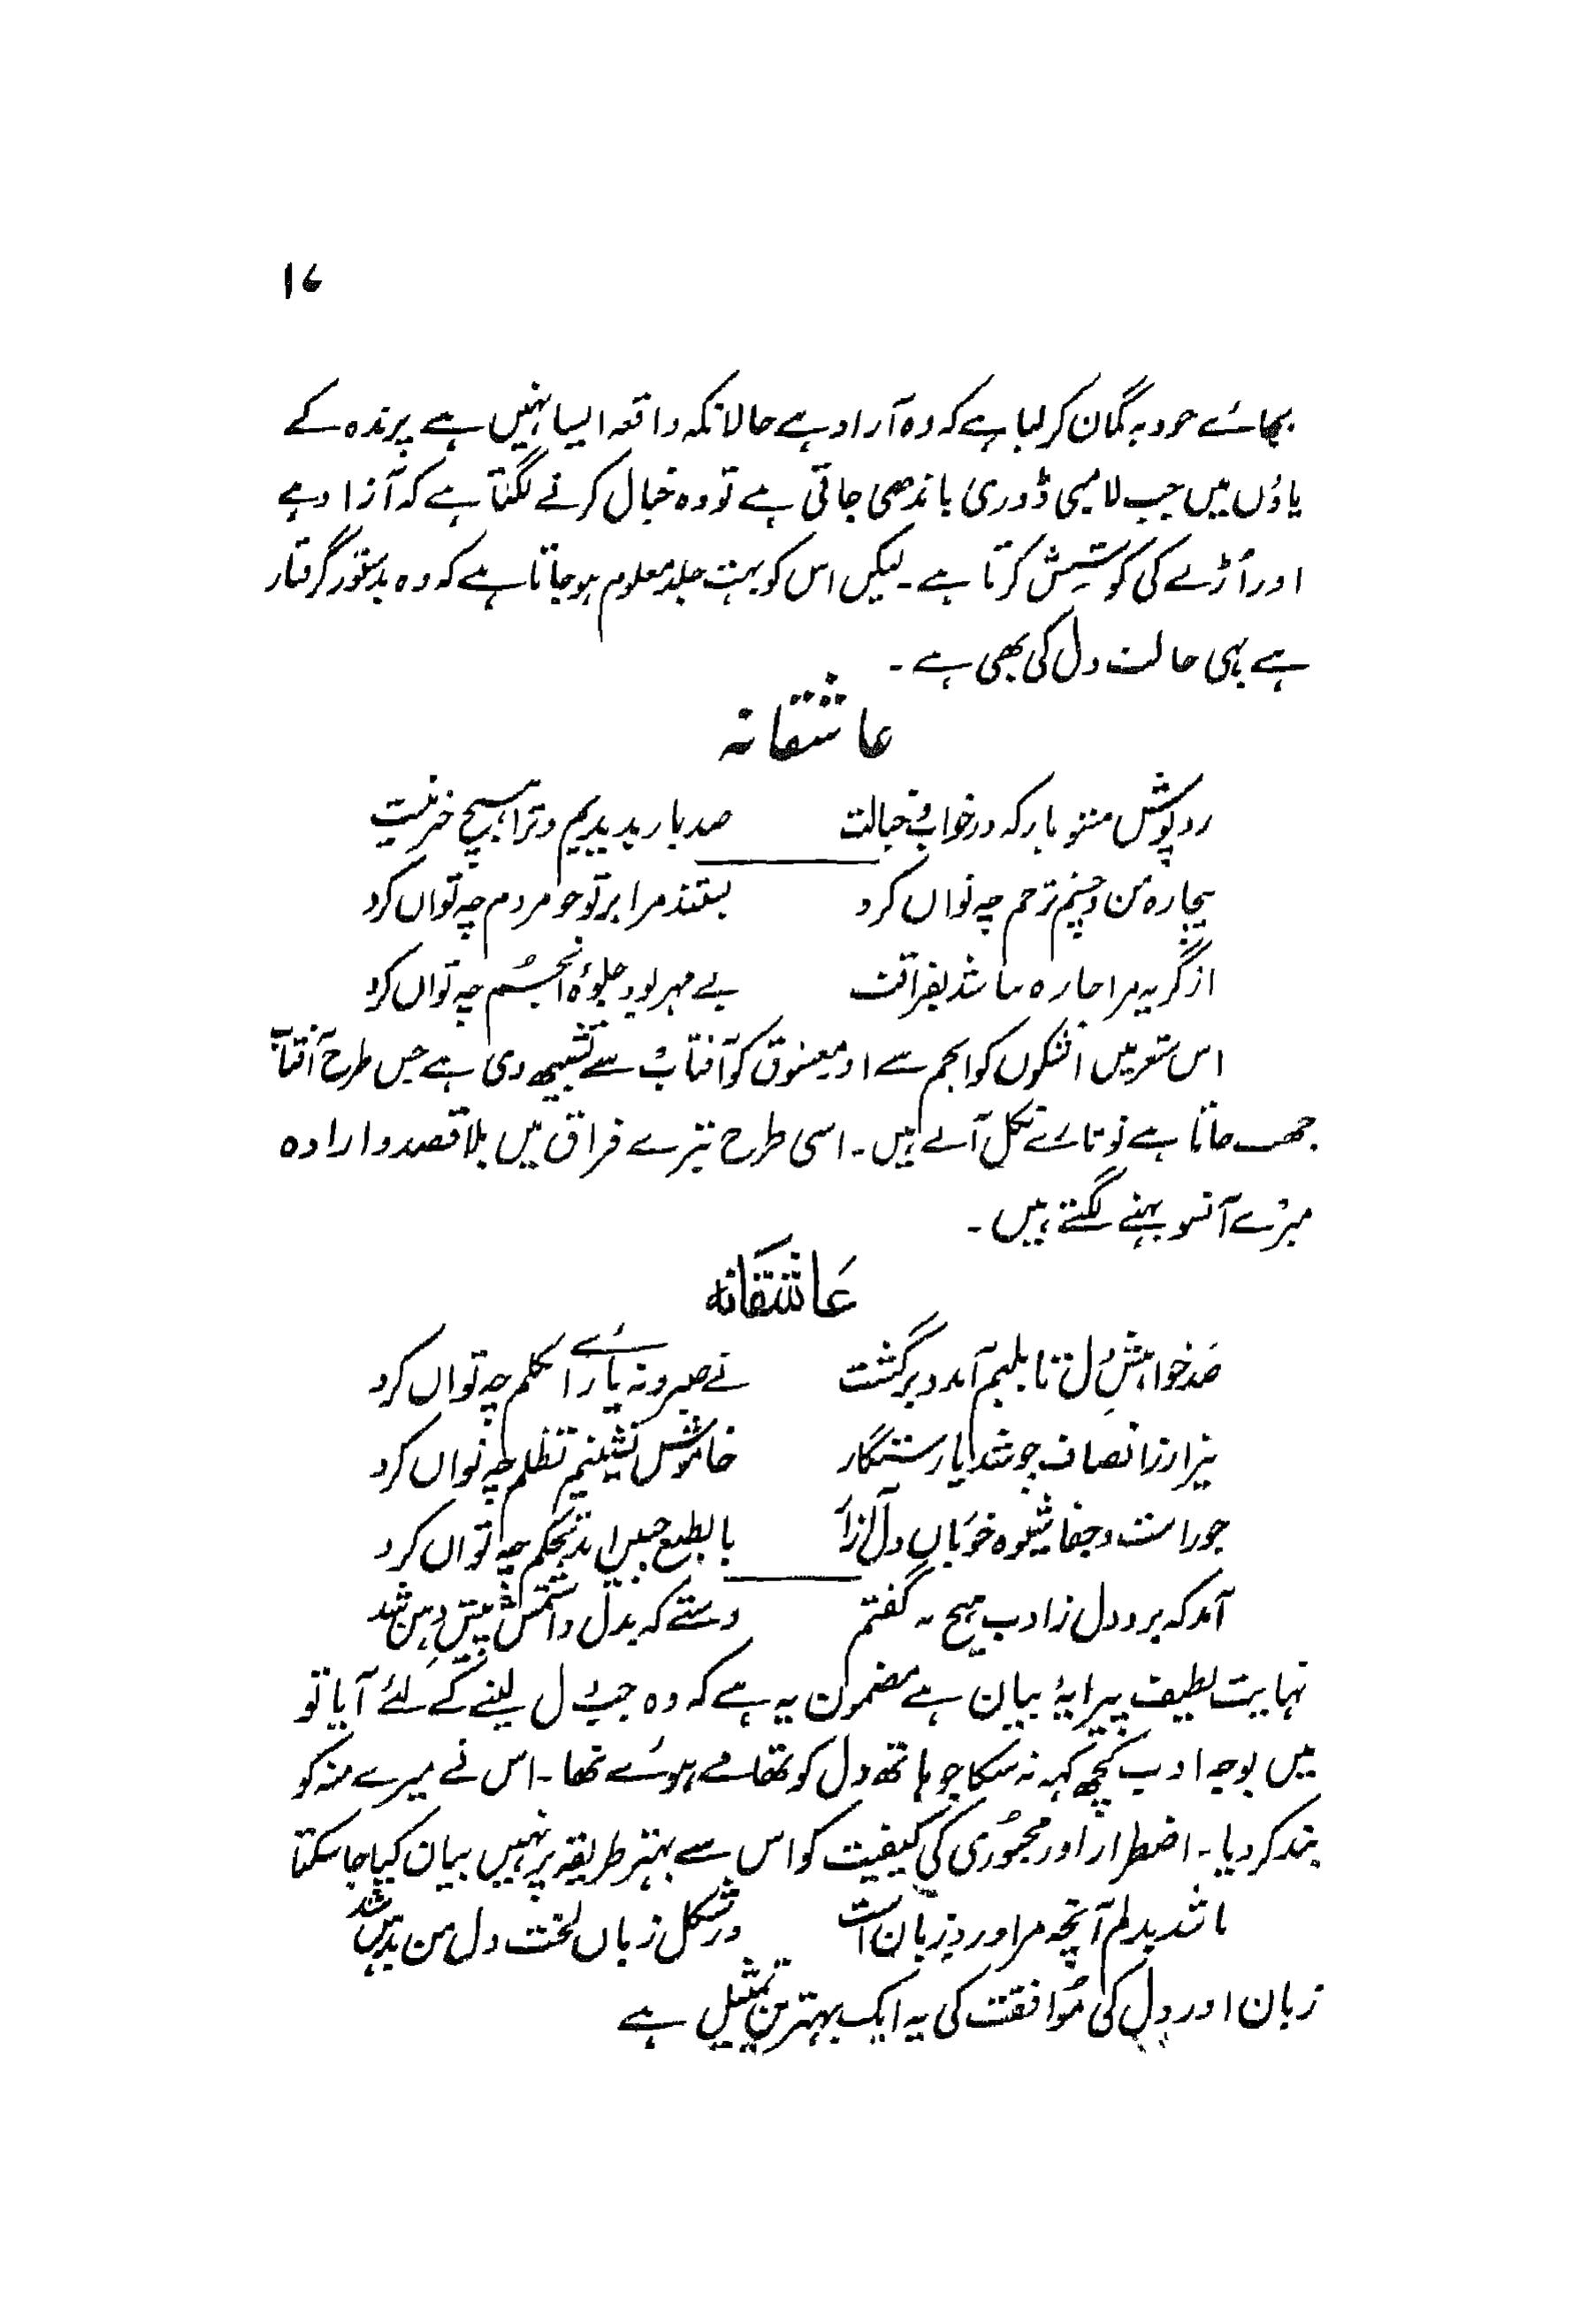 ۱۷
بجائے خود یہ گمان کر لیا ہے کہ وہ آزاد ہے حالانکہ واقعہ ایسا نہیں ہے پرندہ کے
پاؤں میں جب لامبی ڈوری باندھی جاتی ہے تو وہ خیال کرنے لگتا ہے کہ آزاد ہے
اور اُڑنے کی کوشش کرتا ہے۔ لیکن اس کو بہت جلد معلوم ہو جاتا ہے کہ وہ بدستور گرفتار
ہے یہی حالت دل کی بھی ہے۔
عاشقانہ
روپوش مشو بارکہ در خواب و خیالت صد بار بدیدیم و ترا ہیچ خبر نیست
بیچارہ من و چشم ترحم چہ تواں کرد بستند مرا بر تو چو مردم چہ تواں کرد
از گریہ مرا چارہ نباشد بفراقت بے مہر بود جلوۂ انجم چہ تواں کرد
اس شعر میں اشکوں کو انجم سے اور معشوق کو آفتاب سے تشبیہ دی ہے جس طرح آفتاب
چھپ جاتا ہے تو تارے نکل آتے ہیں۔ اسی طرح تیرے فراق میں بلا قصد و ارادہ
میرے آنسو بہنے لگتے ہیں۔
عاشقانہ
صد خواہش دل تا بلبم آمد و برگشت نے صبر و نہ یارائے تکلم چہ تواں کرد
بیزار ز انصاف چو شد یار ستمگار خاموش نشینیم تظلم چہ تواں کرد
جور است و جفا شیوہ خوباں دل آزار بالطبع چنیں اند تحکم چہ تواں کرد
آمد کہ برد دل ز ادب ہیچ نہ گفتم دستے کہ بدل داشتمش پیش دہن شد
نہایت لطیف پیرایۂ بیان ہے مضمون یہ ہے کہ وہ جب دل لینے کے لئے آیا تو
میں بوجہ ادب کچھ کہہ نہ سکا جو ہاتھ دل کو تھامے ہوئے تھا۔ اس نے میرے منہ کو
بند کر دیا۔ اضطرار اور مجبوری کی کیفیت کو اس سے بہتر طریقہ پر نہیں بیان کیا جا سکتا
باشد بدلم آنچہ مرا ورد زبان است در شکل زباں لخت دل من بدہن شد
زبان اور دل کی موافقت کی یہ ایک بہترین تمثیل ہے